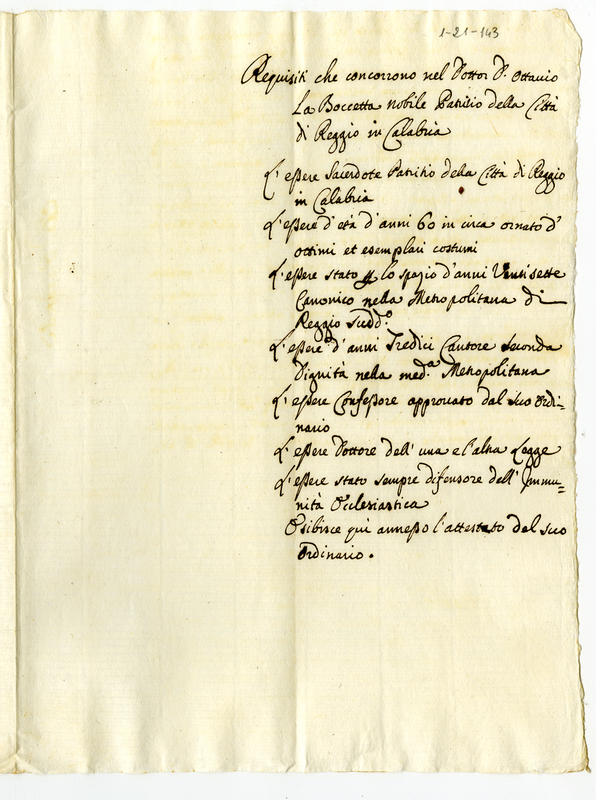 1-21-143
Requisiti che concorrono nel Dottor D. Ottavio
La Boccetta nobile Patritio della Città
di Reggio in Calabria
L'essere Sacerdote Patritio della Città di Reggio
in Calabria
L'essere d'età d'anni 60 in circa ornato d'
ottimi et esemplari costumi
L'essere stato p lo spazio d'anni Ventisette
Canonico nella Metropolitana di
Reggio Sudd.º
L'essere d'anni Tredici Cantore Seconda
Dignità nella med.ª Metropolitana
L'essere Confessore approvato dal suo Ordi=
nario
L'essere Dottore dell' una e l'altra Legge
L'essere stato sempre difensore dell' Immu=
nità Ecclesiastica
Esibisce quì annesso l'attestato del suo
Ordinario.